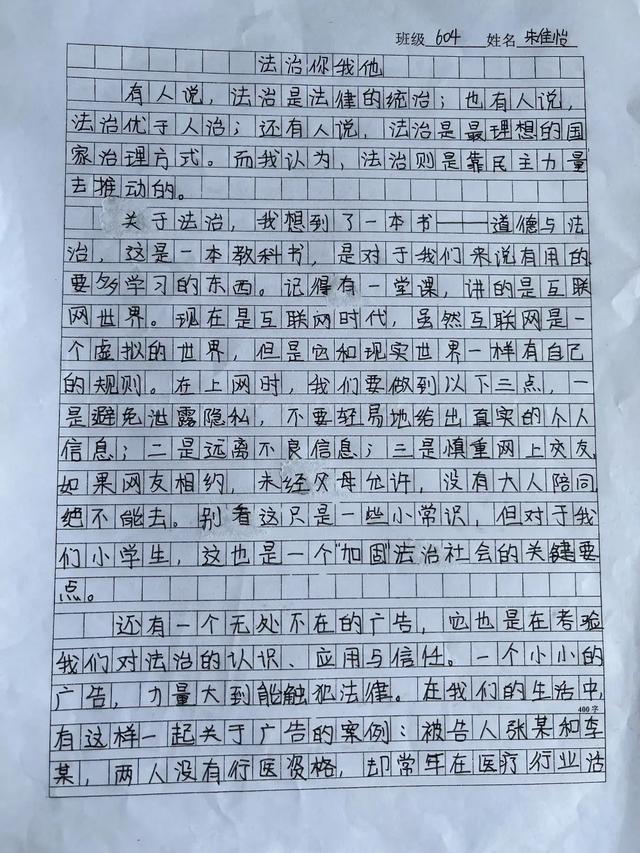 班级 604 姓名 朱佳怡
法治你我他
有人说，法治是法律的统治；也有人说，
法治优于人治；还有人说，法治是最理想的国
家治理方式。而我认为，法治则是靠民主力量
去推动的。
关于法治，我想到了一本书——道德与法
治，这是一本教科书，是对于我们来说有用的
要多学习的东西。记得有一堂课，讲的是互联
网世界。现在是互联网时代，虽然互联网是一
个虚拟的世界，但是它和现实世界一样有自己
的规则。在上网时，我们要做到以下三点，一
是避免泄露隐私，不要轻易地给出真实的个人
信息；二是远离不良信息；三是慎重网上交友，
如果网友相约，未经父母允许，没有大人陪同
绝不能去。别看这只是一些小常识，但对于我
们小学生，这也是一个“加固”法治社会的关键要
点。
还有一个无处不在的广告，它也是在考验
我们对法治的认识、应用与信任。一个小小的
广告，力量大到能触犯法律。在我们的生活中，
400字
有这样一起关于广告的案例：被告人张某和李
某，两人没有行医资格，却常年在医疗行业活